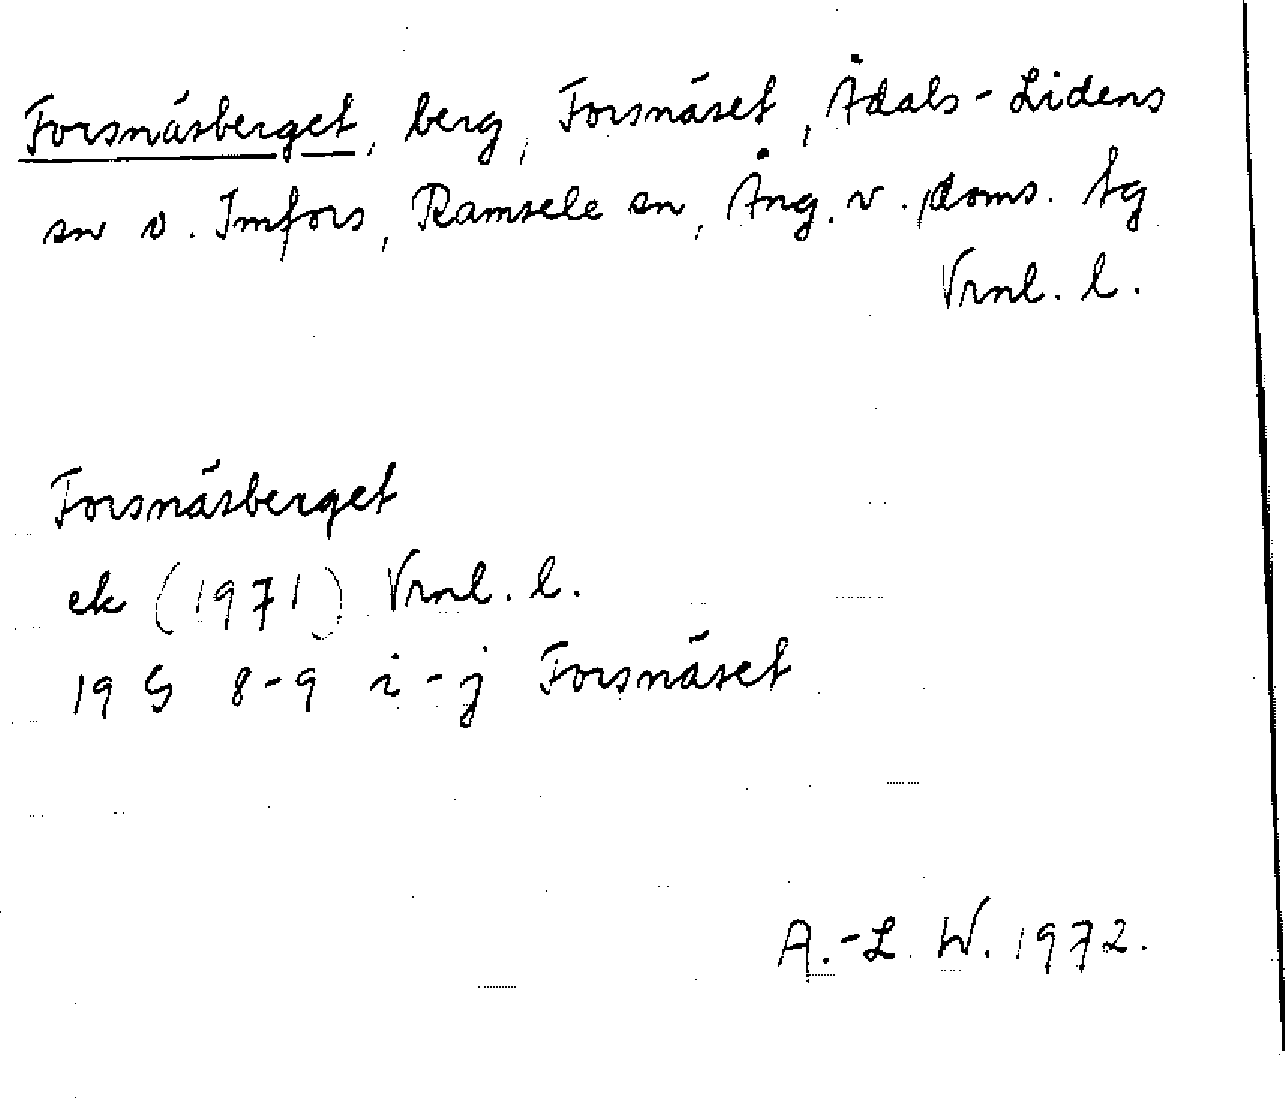 Forsnäsberget, berg, Forsnäset, Ådals-Lidens
sn o. Imfors, Ramsele sn, Ång. v. doms. tg
Vrml. l.
Forsnäsberget
ek (1971) Vrml. l.
19 G 8-9 i-j Forsnäset
A.-L. W. 1972.